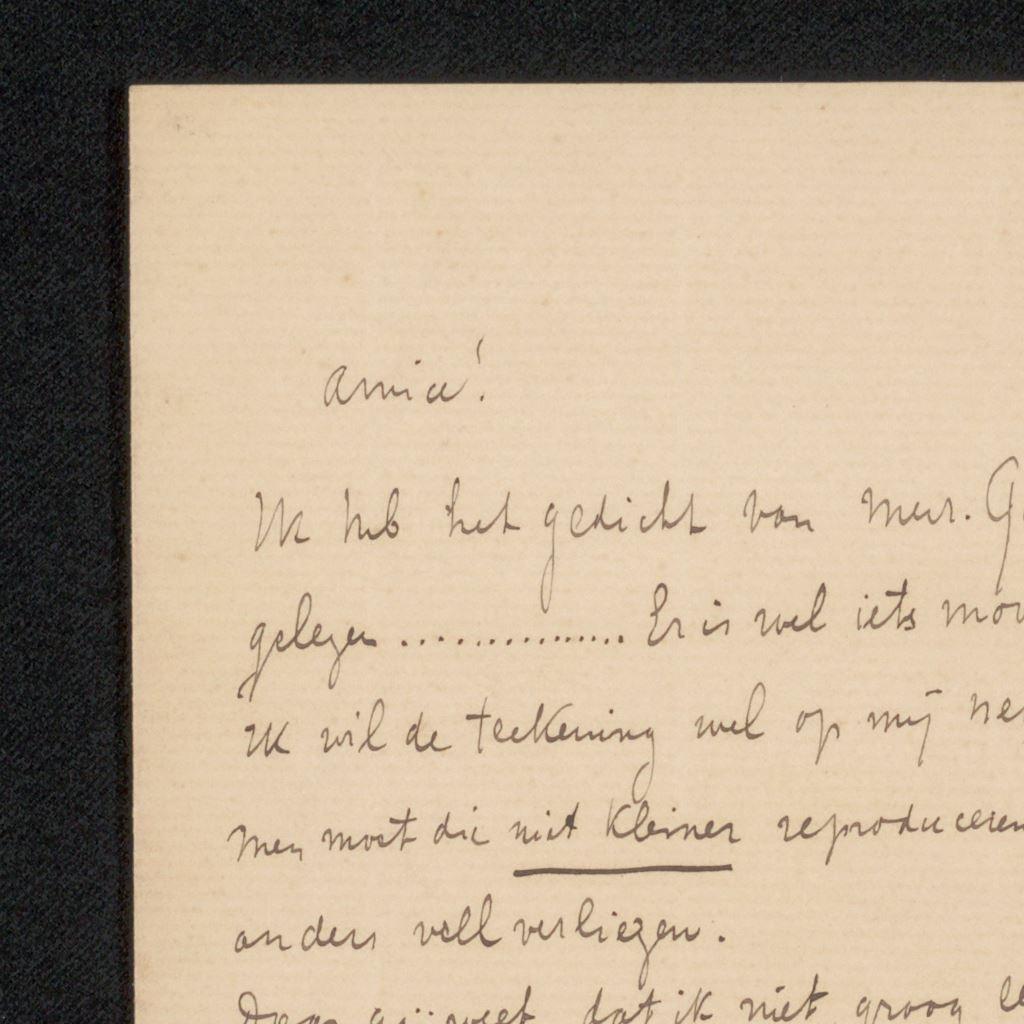 Amice!
Ik heb het gedicht van mevr. G
gelezen ............... Er is wel iets
Ik wil de teekening wel op mij
men moet die niet kleiner reproduceeren
anders veel verliezen.
Daar gij weet dat ik niet graag